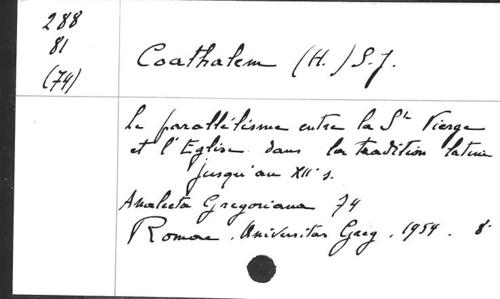 288
81
(74)
Coathalem (H.) S.J.
Le parallélisme entre la Ste Vierge
et l'Eglise dans la tradition latine
jusqu'au XIIe s.
Analecta Gregoriana 74
Romae. Universitas Greg. 1954. 8°